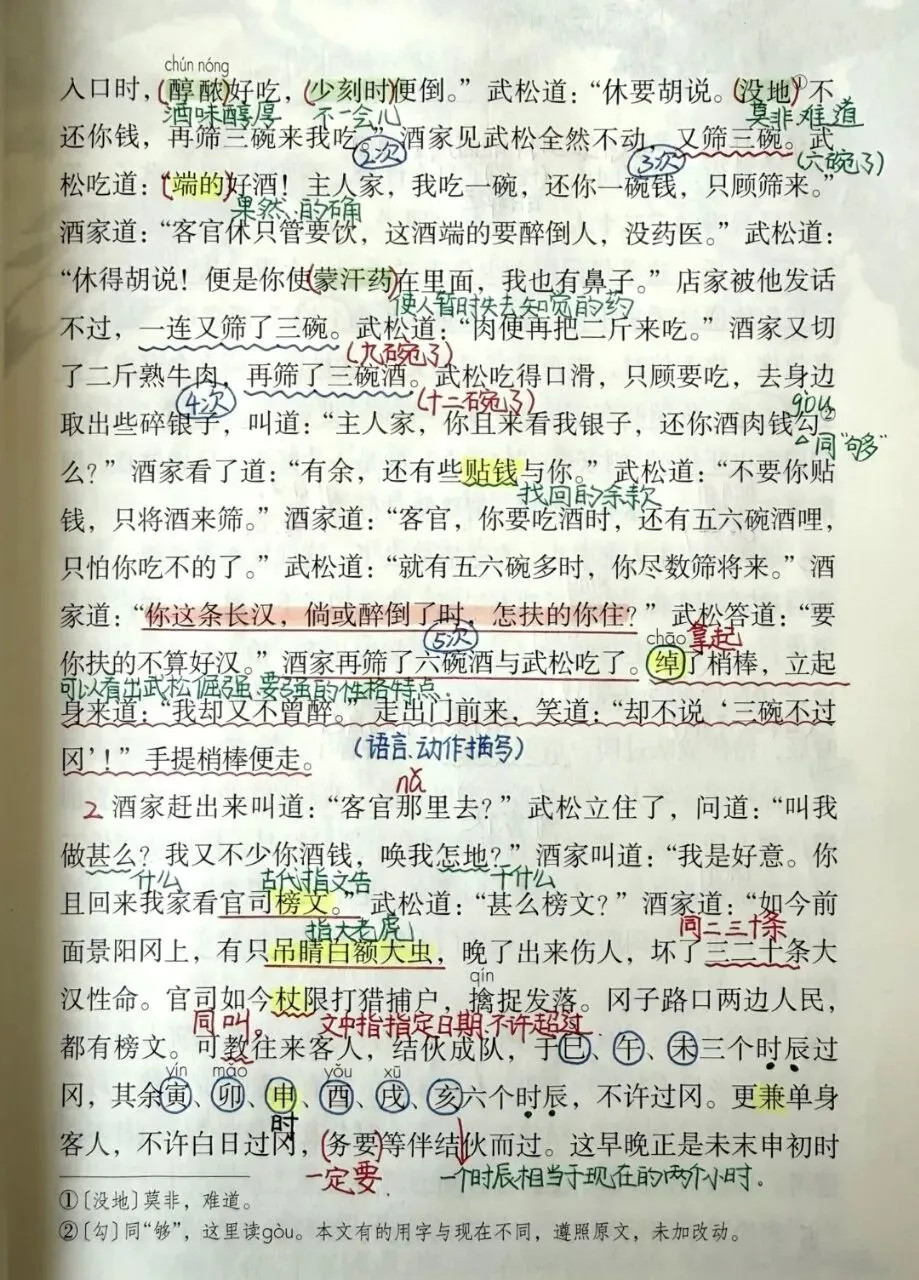 chún nóng
入口时，(醇酿)好吃，(少刻时)便倒。”武松道：“休要胡说。(没地)①不
酒味醇厚 不一会儿 莫非难道
还你钱，再筛三碗来我吃。”酒家见武松全然不动，又筛三碗。武
2次 3次 (六碗了)
松吃道：“(端的)好酒！主人家，我吃一碗，还你一碗钱，只顾筛来。”
果然、的确
酒家道：“客官休只管要饮，这酒端的要醉倒人，没药医。”武松道：
“休得胡说！便是你使(蒙汗药)在里面，我也有鼻子。”店家被他发话
使人暂时失去知觉的药
不过，一连又筛了三碗。武松道：“肉便再把二斤来吃。”酒家又切
(九碗了)
了二斤熟牛肉，再筛了三碗酒。武松吃得口滑，只顾要吃，去身边
4次 (十二碗了) gòu
取出些碎银子，叫道：“主人家，你且来看我银子，还你酒肉钱勾②
同“够”
么？”酒家看了道：“有余，还有些贴钱与你。”武松道：“不要你贴
找回的余款
钱，只将酒来筛。”酒家道：“客官，你要吃酒时，还有五六碗酒哩，
只怕你吃不的了。”武松道：“就有五六碗多时，你尽数筛将来。”酒
家道：“你这条长汉，倘或醉倒了时，怎扶的你住？”武松答道：“要
5次 chāo 拿起
你扶的不算好汉。”酒家再筛了六碗酒与武松吃了。绰了梢棒，立起
可以看出武松倔强、要强的性格特点.
身来道：“我却又不曾醉。”走出门前来，笑道：“却不说‘三碗不过
冈’！”手提梢棒便走。 (语言、动作描写)
nǎ
2 酒家赶出来叫道：“客官那里去？”武松立住了，问道：“叫我
做甚么？我又不少你酒钱，唤我怎地？”酒家叫道：“我是好意。你
什么 古代指文告 干什么
且回来我家看官司榜文。”武松道：“甚么榜文？”酒家道：“如今前
指大老虎 同二三十条
面景阳冈上，有只吊睛白额大虫，晚了出来伤人，坏了三二十条大
qín
汉性命。官司如今杖限打猎捕户，擒捉发落。冈子路口两边人民，
同叫。 文中指指定日期、不许超过
都有榜文。可教往来客人，结伙成队，于巳、午、未三个时辰过
yín mǎo yǒu xū
冈，其余寅、卯、申、酉、戌、亥六个时辰，不许过冈。更兼单身
时
客人，不许白日过冈，(务要)等伴结伙而过。这早晚正是未末申初时
一定要 一个时辰相当于现在的两个小时.
①〔没地〕莫非，难道。
②〔勾〕同“够”，这里读gòu。本文有的用字与现在不同，遵照原文，未加改动。